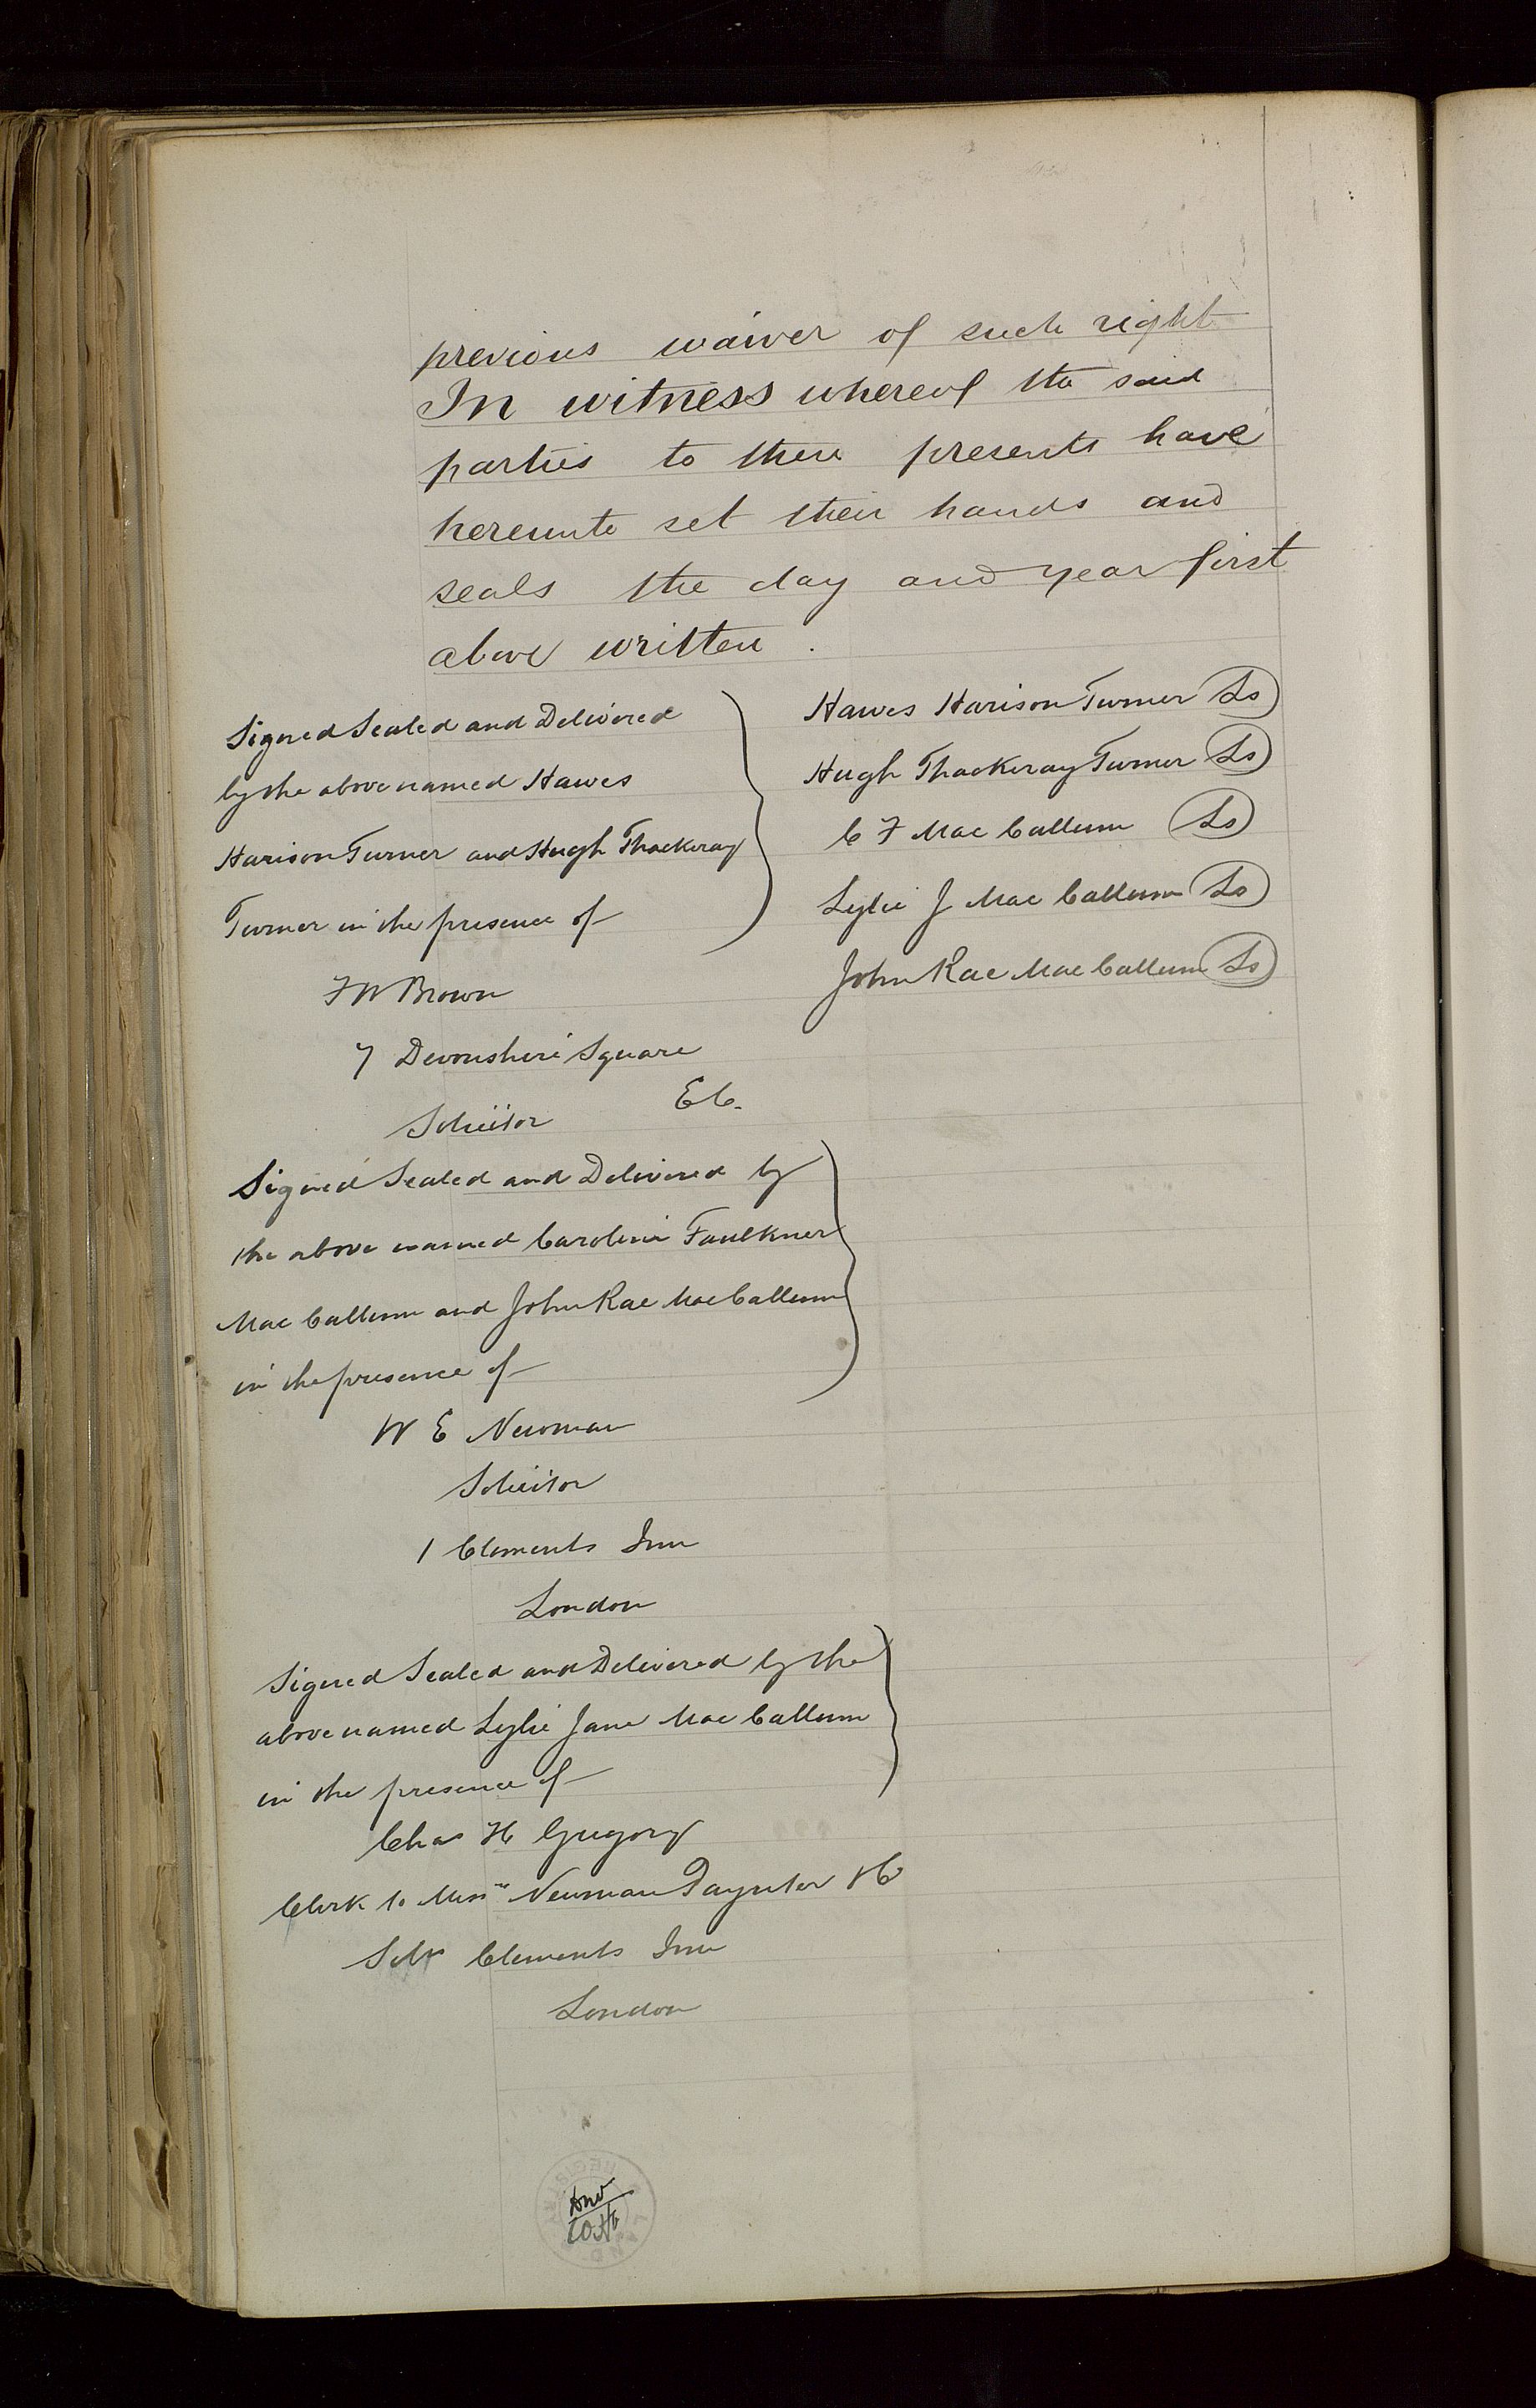 previous waiver of such right
In witness whereof the said
parties to these presents have
hereunto set their hands and
seals the day and year first
above written.
Signed Sealed and Delivered
by the above named Hawes
Harison Turner and Hugh Thackeray
Turner in the presence of
F W Brown
7 Devonshire Square
E C.
Solicitor
Hawes Harison Turner Ls
Hugh Thackeray Turner Ls
C F Mac Callum Ls
Lylie J Mac Callum Ls
John Rae Mac Callum Ls
Signed Sealed and Delivered by
the above named Caroline Faulkner
Mac Callum and John Rae MacCallum
in the presence of
W E Newman
Solicitor
1 Clements Inn
London
Signed Sealed and Delivered by the
above named Lylie Jane Mac Callum
in the presence of
Chas H Gregory
Clerk to Messrs Newman Paynter & Co
Solrs Clements Inn
London